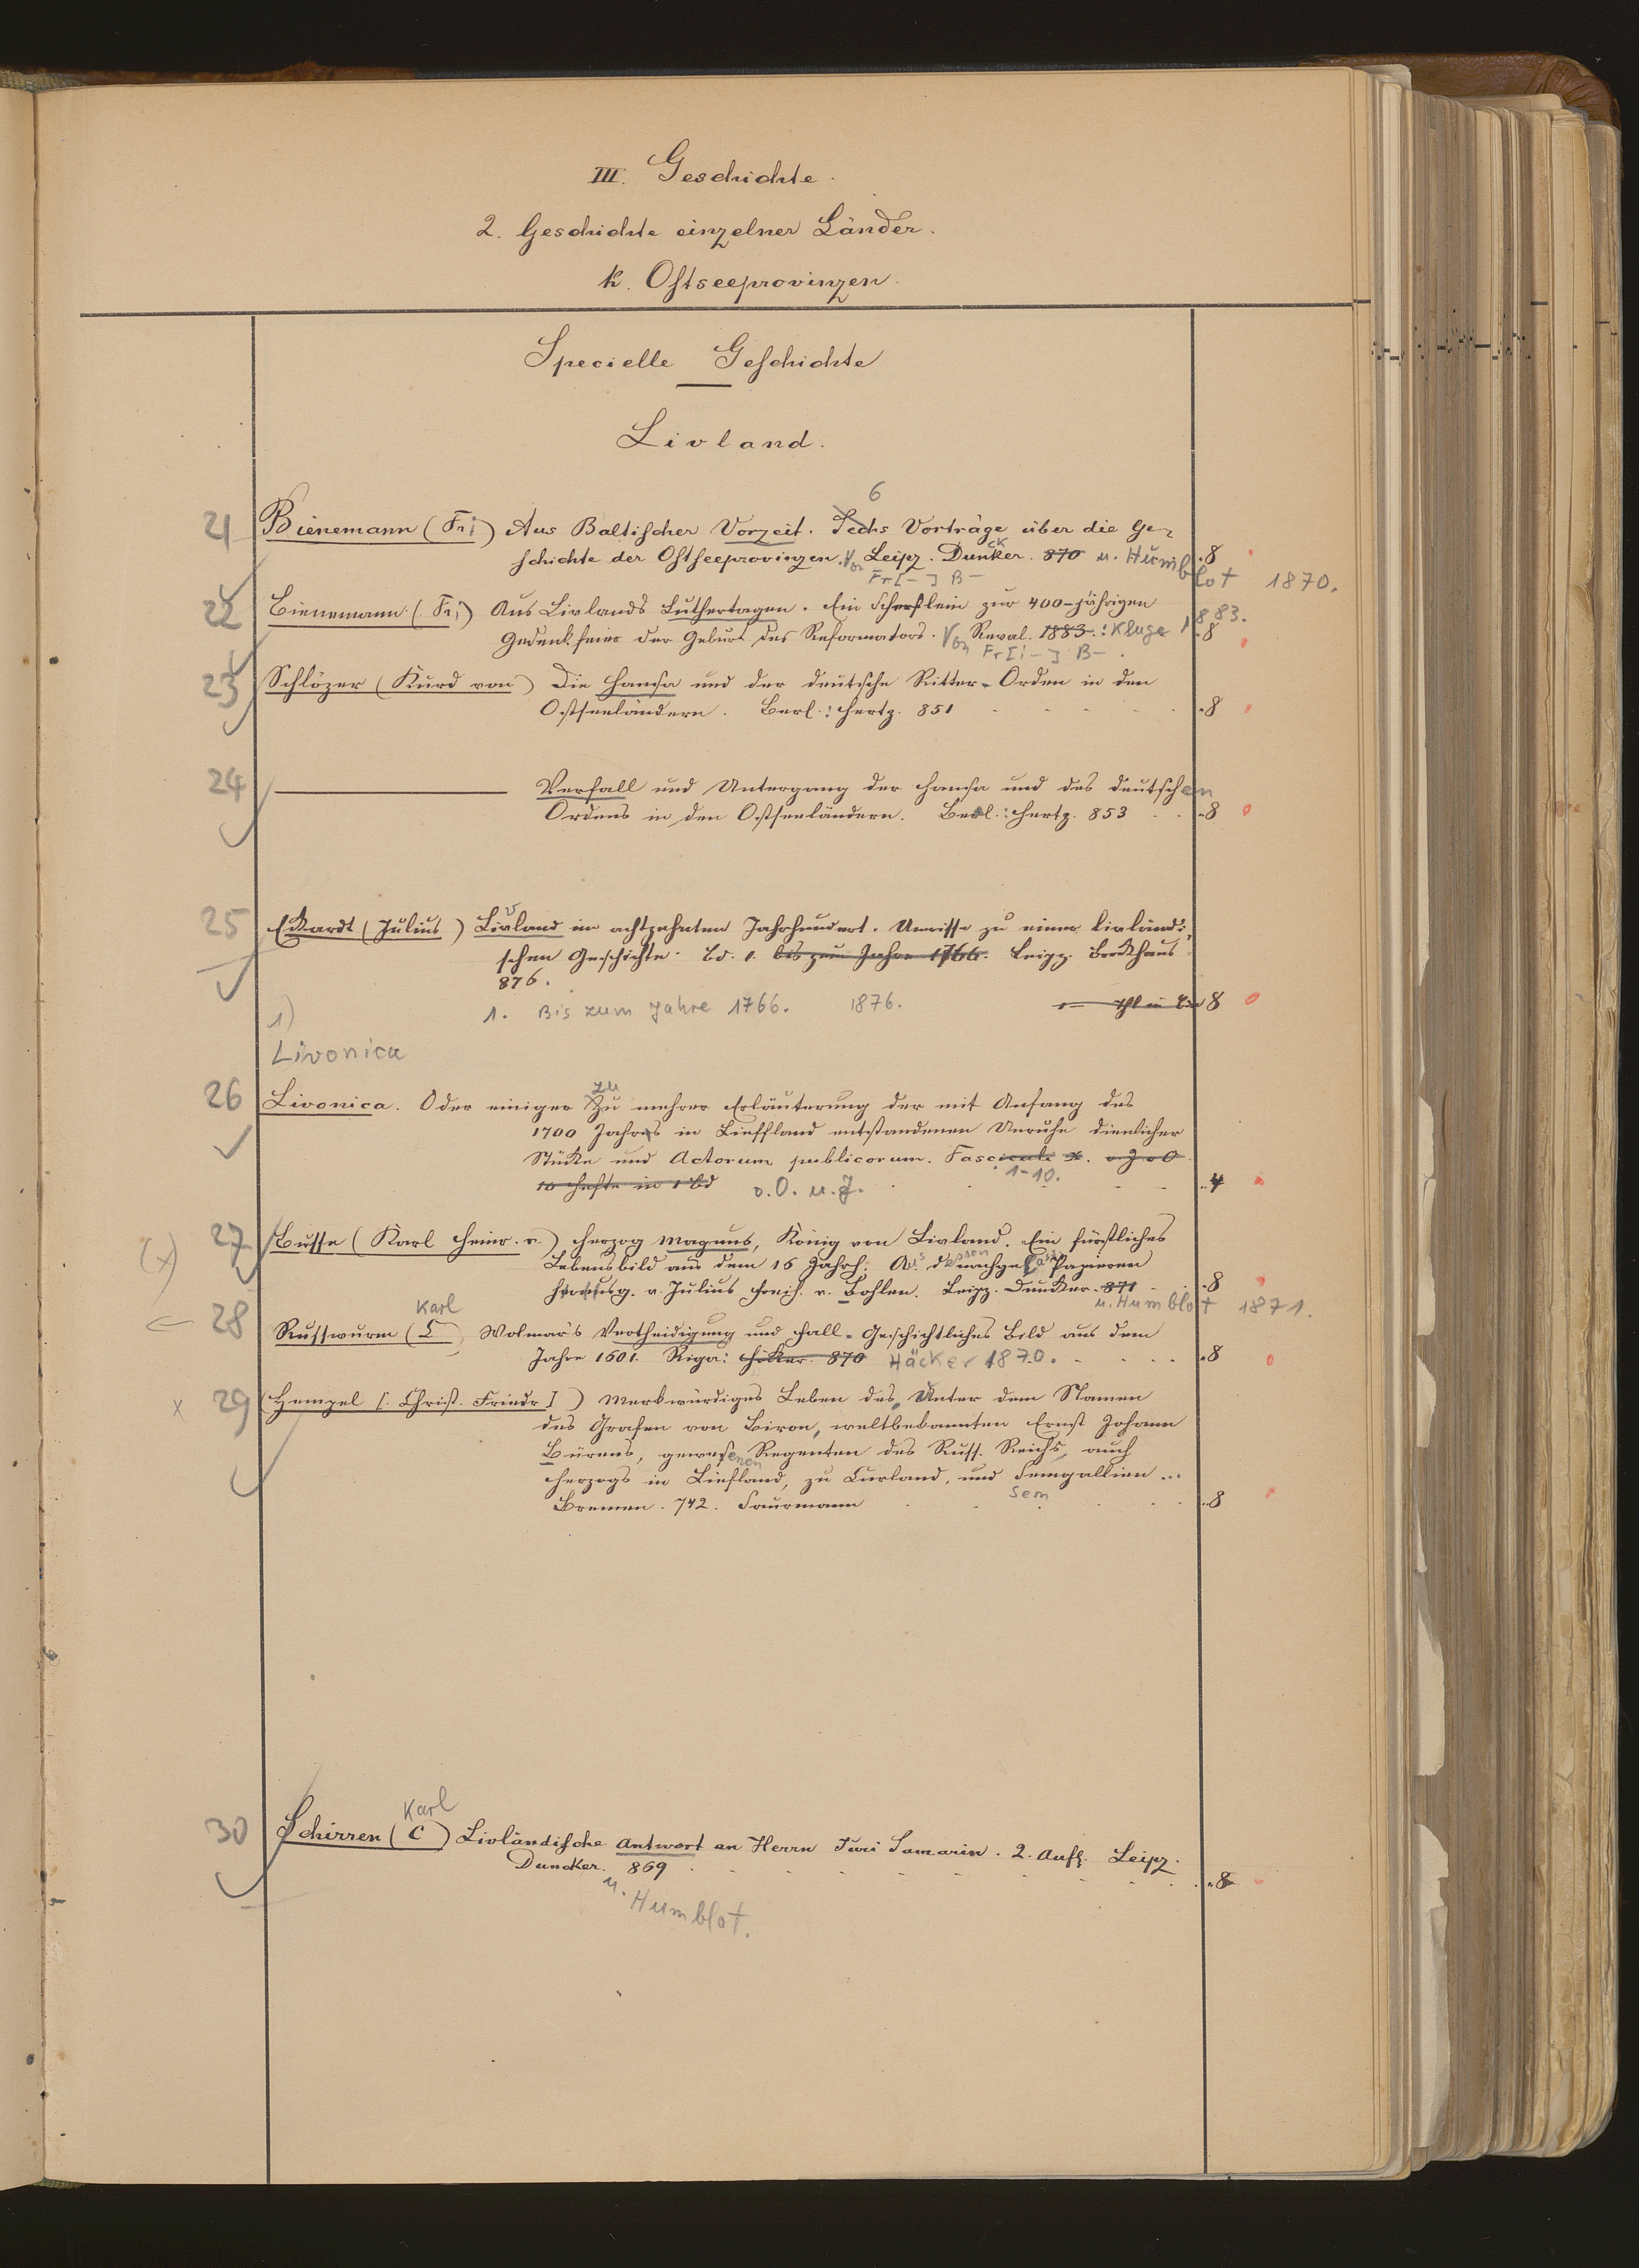 III. Geschichte.
2. Geschichte einzelner Länder.
k. Ostseeprovinzen.
Specielle Geschichte
Livland.
6
21 Bienemann (Fr.) Aus Baltischer Vorzeit. Sechs Vorträge über die Ge-
schichte der Ostseeprovinzen. Von Leipz. Duncker. 870 u. Humblot 1870. 8
Fr[-] B-
22 Bienemann (Fr.) Aus Livlands Luthertagen. Ein Scherflein zur 400-jährigen
Gedenkfeier der Geburt des Reformators. Von Reval. 1883. : Kluge 1883. 8
Fr[i-] B-.
23 Schlözer (Kurd von) Die Hansa und der deutsche Ritter-Orden in den
Ostseeländern. Berl.: Hertz. 851 8
24 Verfall und Untergang der Hansa und des deutschen
Ordens in den Ostseeländern. Berl.: Hertz. 853 8
25 Eckardt (Julius) Livland im achtzehnten Jahrhundert. Umrisse zu einer livländi-
schen Geschichte. Bd. 1. bis zum Jahre 1766. Leipz. Brockhaus
876.
1. Bis zum Jahre 1766. 1876. 8
1)
Livonica
zu
26 Livonica. Oder einiger Zu mehrer Erläuterung der mit Anfang des
1700 Jahres in Lieffland entstandenen Unruhe dienlicher
Stücke und Actorum publicorum. Fasciculi X. o J o O
1-10.
10 Hefte in 1 Bd o. O. u. J. 4
27 Busse (Karl Heinr. v.) Herzog Magnus, König von Livland. Ein fürstliches
(x)
Lebensbild aus dem 16 Jahrh: Aus dessen nachgelass Papieren
herausg. v. Julius Freih. v. Bohlen. Leipz. Duncker. 871 8
u. Humblot 1871.
Karl
28 Russwurm (C) Wolmar's Vertheidigung und Fall. Geschichtliches Bild aus dem
Jahre 1601. Riga: Häcker. 870 Häcker 1870. 8
x 29 (Hempel [: Christ. Friedr]) Merkwürdiges Leben des, Unter dem Namen
des Grafen von Biron, weltbekannten Ernst Johann
Bürens, gewesenen Regenten des Russ. Reichs, auch
Herzogs in Liefland, zu Curland, und Semgallien ...
Sem
Bremen. 742. Saurmann 8
Karl
30 Schirren (C) Livländische Antwort an Herrn Juri Samarin. 2. Aufl. Leipz.
Duncker. 869 8
u. Humblot.